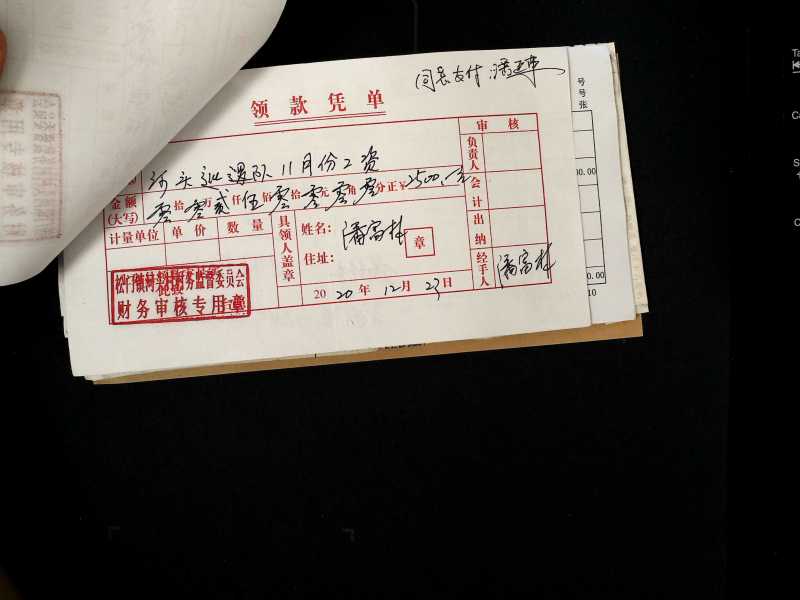 同意支付 潘
领款凭单
河头巡逻队11月份工资
审核
负责人
金额(大写) 零拾零万贰仟伍佰零拾零元零角零分正¥2500.元
会计
计量单位 单价 数量
具领人盖章
姓名:潘富林
章
住址:
出纳
经手人 潘富林
2020年12月23日
财务监督委员会
财务审核专用章
号
号
张
00.00
00.00
10